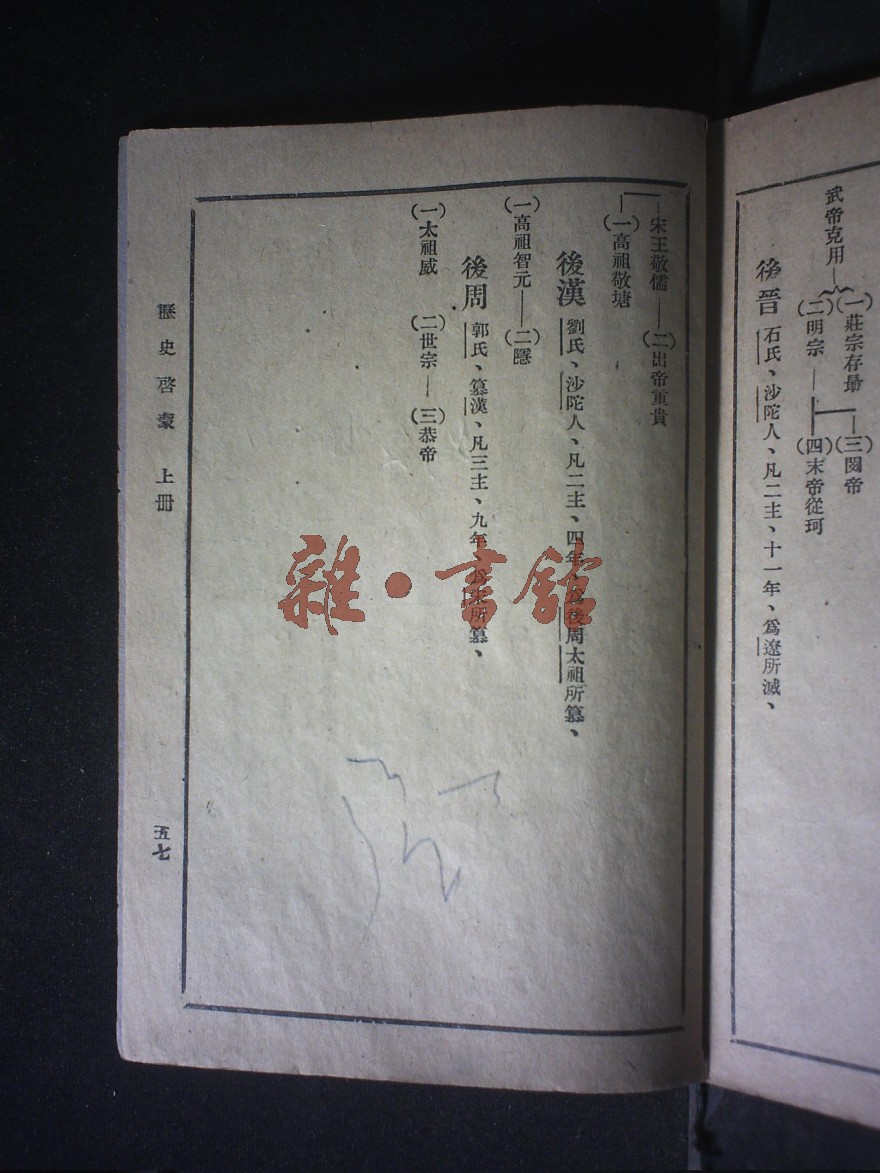 武帝克用
(一)莊宗存勗
(三)閔帝
(二)明宗
(四)末帝從珂
後晉 石氏、沙陀人、凡二主、十一年、爲遼所滅、
宋王敬儒 (二)出帝重貴
(一)高祖敬塘
後漢 劉氏、沙陀人、凡二主、四年、爲後周太祖所篡、
(一)高祖智元 (二)隱
後周 郭氏、篡漢、凡三主、九年、爲宋所篡、
(一)太祖威 (二)世宗 (三)恭帝
歷史啓蒙 上冊
五七
雜·書館